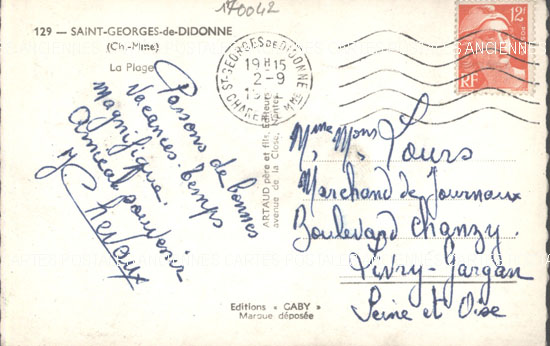 170042
129 — SAINT-GEORGES-de-DIDONNE
(Ch.-Mme)
La Plage
ST-GEORGES DE DIDONNE
19H15
2-9
12F
RF
Passons de bonnes
Vacances. temps
magnifique.
Chevaux
ARTAUD père et fils, Éditeurs
avenue de la Close, Nantes
Mme, Mons, Tours
Marchand de Journaux
Boulevard Chanzy
Livry-Gargan
Seine et Oise
Editions « GABY »
Marque déposée
CARTES POSTALES ANCIENNES